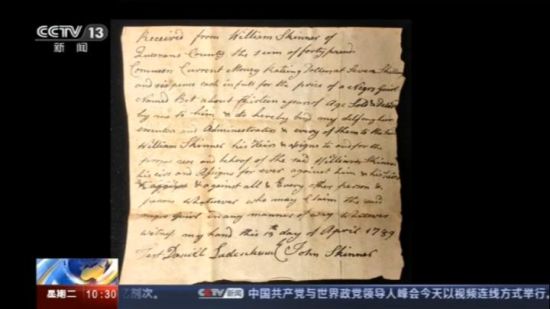 CCTV 13
新闻
Received from William Skinner of
Queenans County the sum of forty pound
Common Current Money Rating Dollars at Seven Shillings
and six pence each in full for the price of a Negro Girl
Named Bet about fifteen years of Age Sold &
by me to him & do hereby bind my self my heirs
executors and Administrators & every of them to the
William Skinner his Heirs & assigns to and for the
proper use and behoof of the said William Skinner
his heirs and Assigns for ever against him & his heirs
& against all & Every other person &
persons whatsoever who may Claim the said
negro Girl in any manner of way whatsoever
witness my hand this day of April 1789
Test John Skinner
星期二 10:30 亿剂次。 CCTV 新闻 中国共产党与世界政党领导人峰会今天以视频连线方式举行。